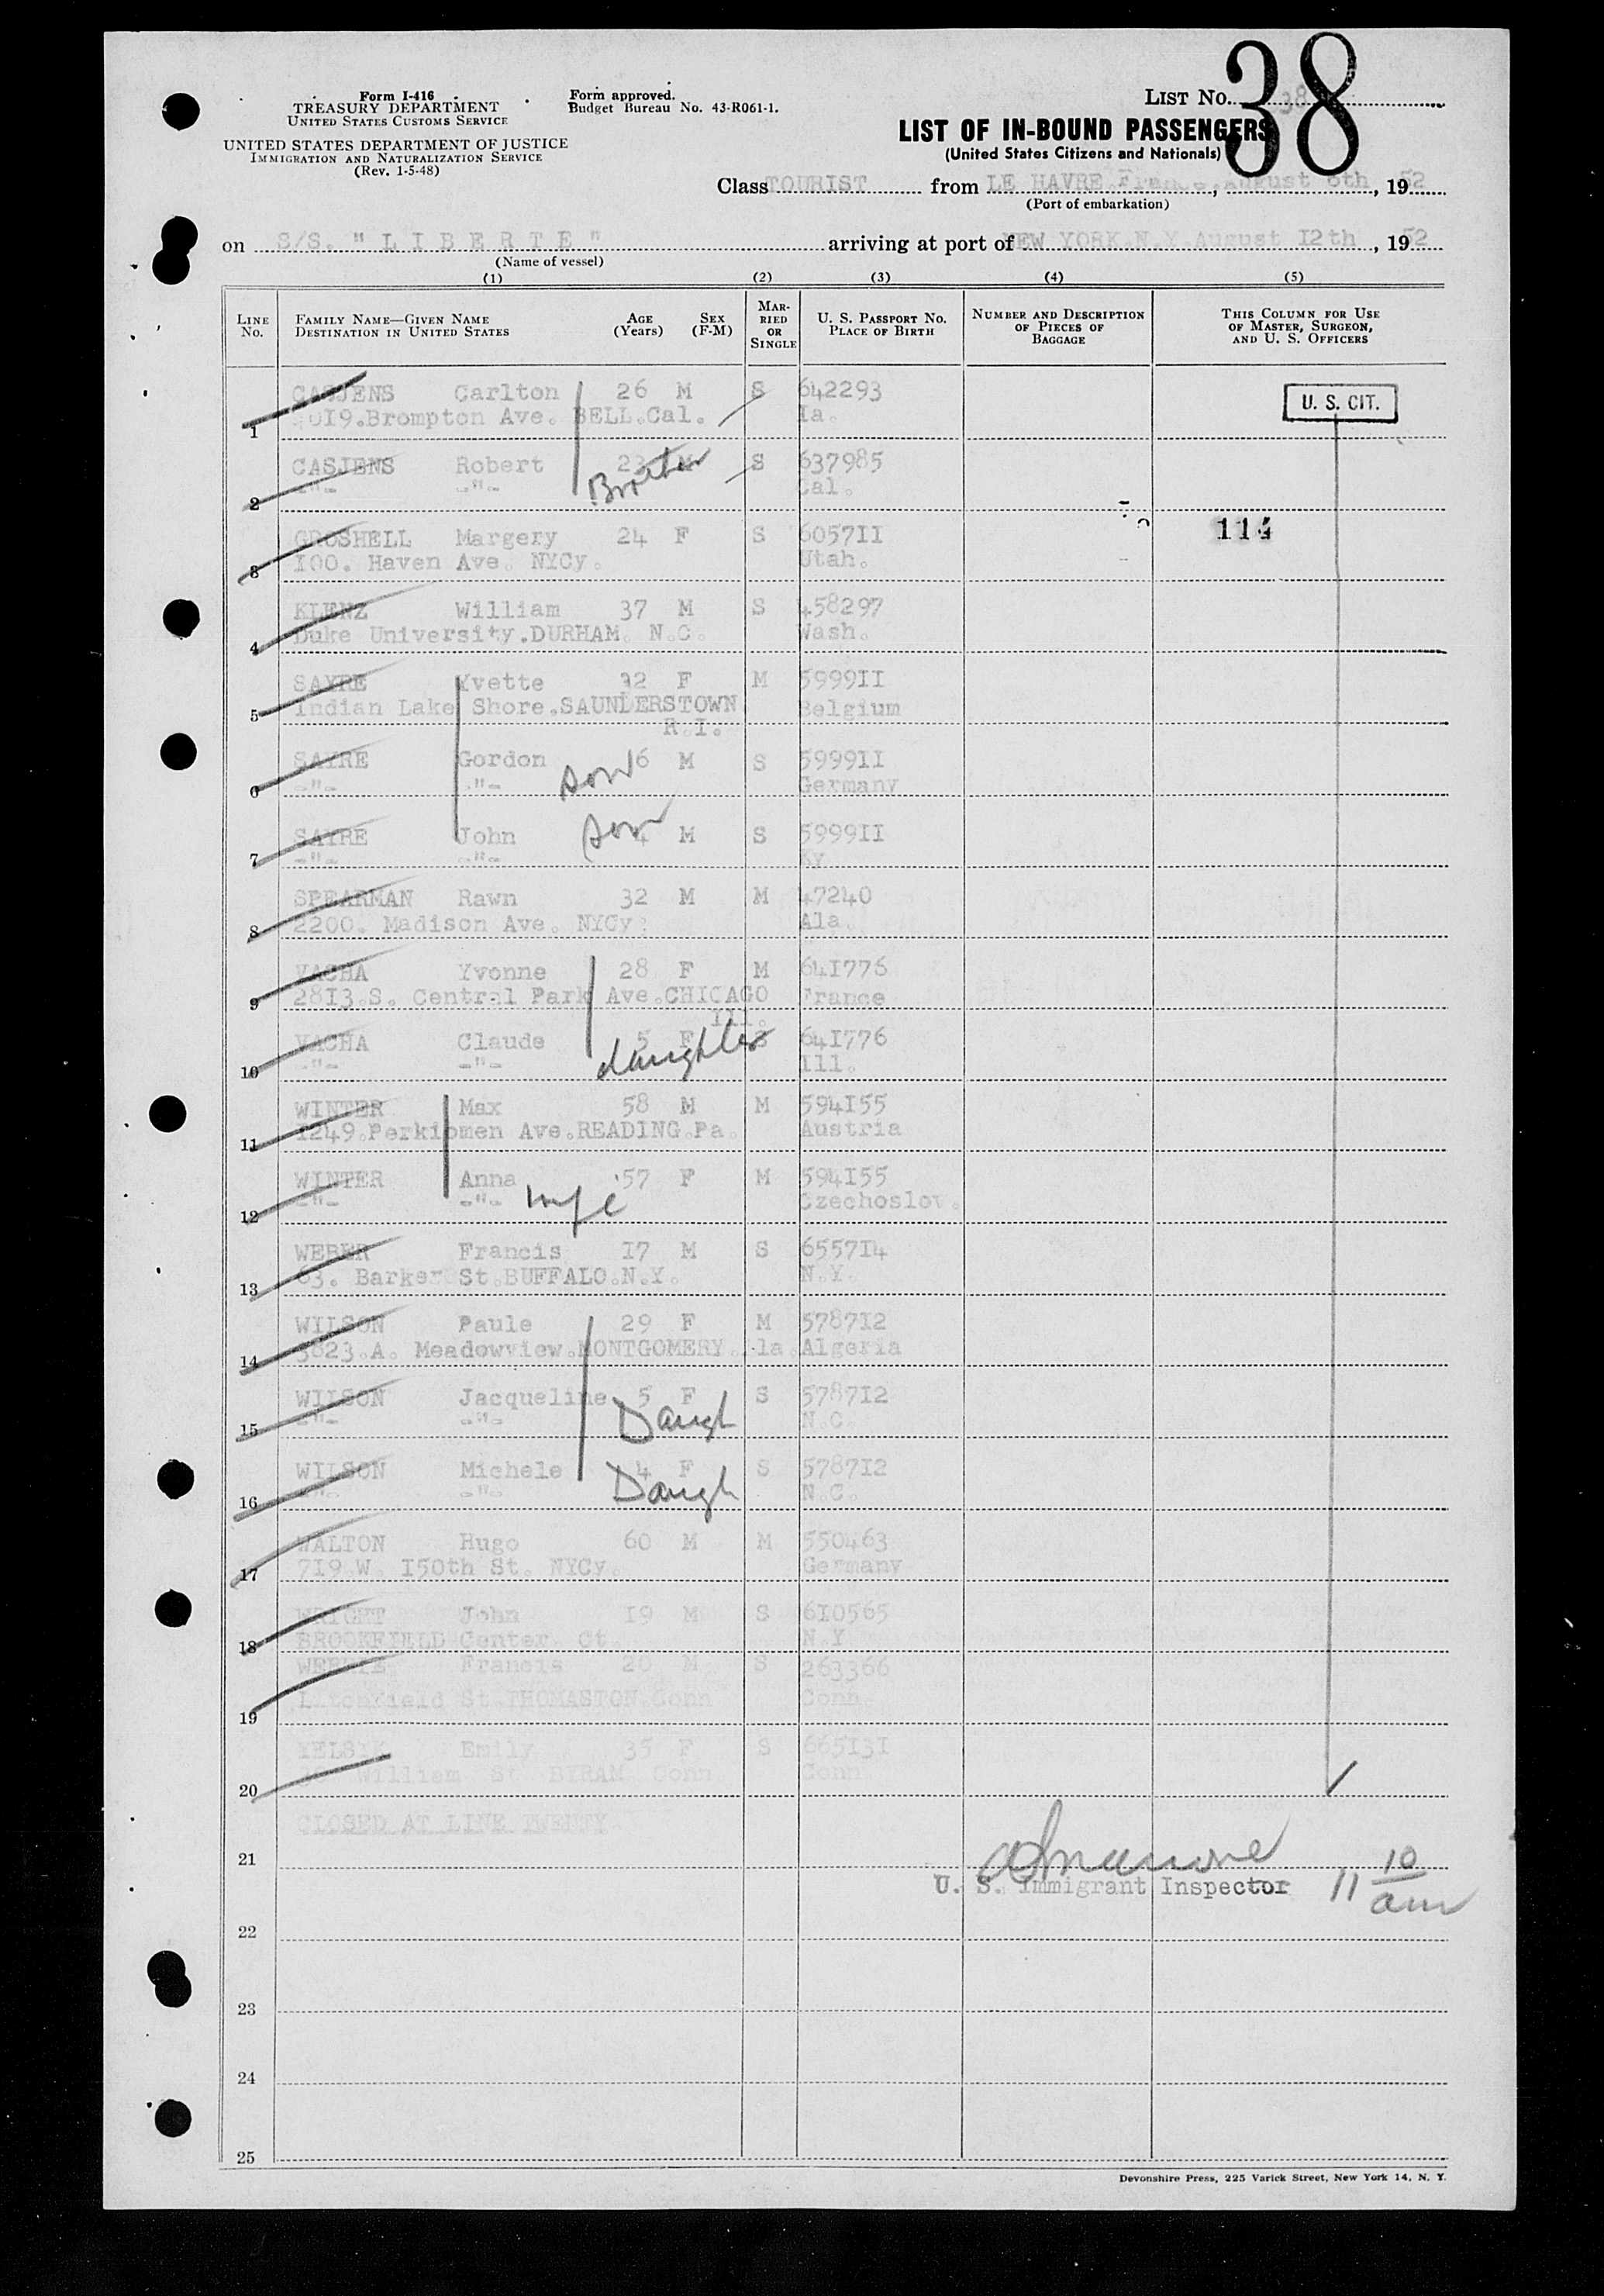 38
Form I-416
TREASURY DEPARTMENT
UNITED STATES CUSTOMS SERVICE
UNITED STATES DEPARTMENT OF JUSTICE
IMMIGRATION AND NATURALIZATION SERVICE
(Rev. 1-5-48)
Form approved.
Budget Bureau No. 43-R061-1.
LIST No. 38
LIST OF IN-BOUND PASSENGERS
(United States Citizens and Nationals)
Class TOURIST from LE HAVRE France, August 6th, 1952
(Port of embarkation)
on S/S. "LIBERTE" arriving at port of NEW YORK.N.Y.August I2th, 1952
(Name of vessel)
(1) (2) (3) (4) (5)
LINE No. FAMILY NAME—GIVEN NAME DESTINATION IN UNITED STATES AGE (Years) SEX (F-M) MARRIED OR SINGLE U. S. PASSPORT No. PLACE OF BIRTH NUMBER AND DESCRIPTION OF PIECES OF BAGGAGE THIS COLUMN FOR USE OF MASTER, SURGEON, AND U. S. OFFICERS
CASJENS Carlton 26 M S 642293 U. S. CIT.
1 Brompton Ave. BELL.Cal. Ia.
CASJENS Robert 23 M S 637985
2 -"- -"- Brother Cal.
GROSHELL Margery 24 F S 6057II 114
3 I00. Haven Ave. NYCy. Utah.
KLENZ William 37 M S 458297
4 Duke University.DURHAM. N.C. Wash.
SAYRE Yvette 32 F M 5999II
5 Indian Lake Shore.SAUNDERSTOWN Belgium
R.I.
SAYRE Gordon 6 M S 5999II
6 -"- -"- son Germany
SAYRE John 4 M S 5999II
7 -"- -"- son Ky
SPEARMAN Rawn 32 M M 47240
8 2200. Madison Ave. NYCy. Ala.
VACHA Yvonne 28 F M 64I776
9 28I3.S. Central Park Ave.CHICAGO France
Ill.
VACHA Claude 5 F S 64I776
10 -"- -"- daughter Ill.
WINTER Max 58 M M 594I55
11 I249.Perkiomen Ave.READING.Pa. Austria
WINTER Anna 57 F M 594I55
12 -"- -"- wife Czechoslov.
WEBER Francis I7 M S 6557I4
13 63. Barker St.BUFFALO.N.Y. N.Y.
WILSON Paule 29 F M 5787I2
14 3623.A. Meadowview.MONTGOMERY. Ala. Algeria
WILSON Jacqueline 5 F S 5787I2
15 -"- -"- Daugh N.C.
WILSON Michele 4 F S 5787I2
16 -"- -"- Daugh N.C.
WALTON Hugo 60 M M 550463
17 7I9.W. I50th St. NYCy. Germany
WRIGHT John I9 M S 6I0565
18 BROOKFIELD Center. Ct. N.Y
Francis 20 M S 263366
19 Litchfield St.THOMASTON.Conn Conn.
Emily 35 F S 665I3I
20 William St. BYRAM. Conn Conn
CLOSED AT LINE TWENTY
21
U. S. Immigrant Inspector 11 10 am
22
23
24
25
Devonshire Press, 225 Varick Street, New York 14, N. Y.